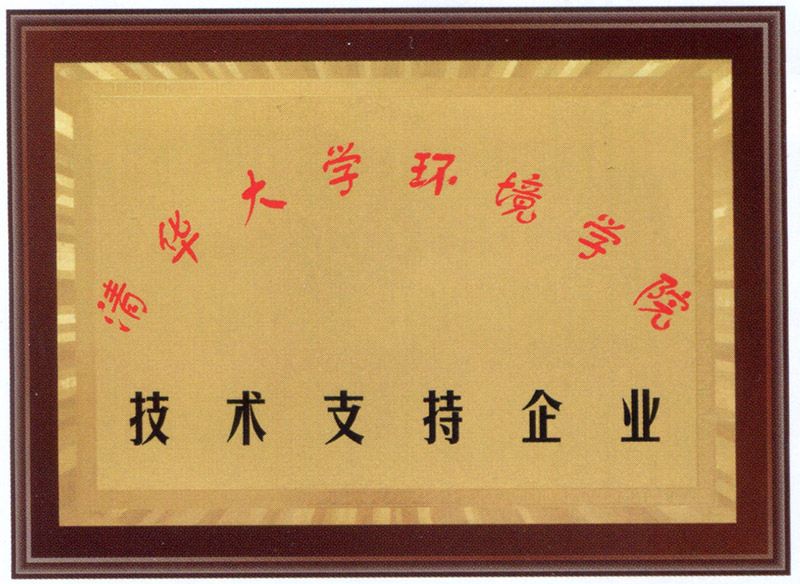 清华大学环境学院
技术支持企业